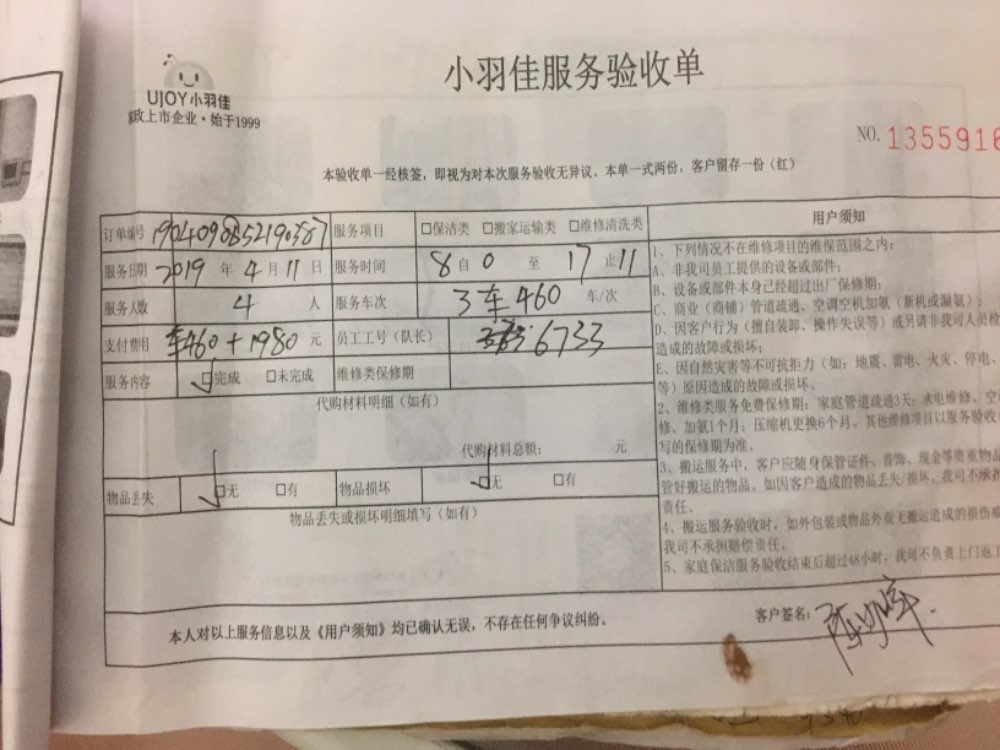 小羽佳服务验收单
UJOY小羽佳
家政上市企业·始于1999
NO. 1355916
本验收单一经核签，即视为对本次服务验收无异议。本单一式两份，客户留存一份（红）
订单编号 服务项目 □保洁类 □搬家运输类 □维修清洗类
服务日期 2019 年 4 月 11 日 服务时间 8 自 0 至 17 止 11
服务人数 4 人 服务车次 3车460 车/次
支付费用 车460+1980 元 员工工号（队长） 6733
服务内容 □完成 □未完成 维修类保修期
代购材料明细（如有）
代购材料总额： 元
物品丢失 □无 □有 物品损坏 □无 □有
物品丢失或损坏明细填写（如有）
本人对以上服务信息以及《用户须知》均已确认无误，不存在任何争议纠纷。
用户须知
1、下列情况不在维修项目的维保范围之内：
A、非我司员工提供的设备或部件；
B、设备或部件本身已经超过出厂保修期；
C、商业（商铺）管道疏通、空调空机加氨（新机或漏氨）；
D、因客户行为（擅自装卸、操作失误等）或另请非我司人员检
造成的故障或损坏；
E、因自然灾害等不可抗拒力（如：地震、雷电、火灾、停电、
等）原因造成的故障或损坏。
2、维修类服务免费保修期：家庭管道疏通3天；水电维修、空
修、加氨1个月；压缩机更换6个月。其他维修项目以服务验收
写的保修期为准。
3、搬运服务中，客户应随身保管证件、首饰、现金等贵重物品
管好搬运的物品。如因客户造成的物品丢失/损坏，我司不承担
责任。
4、搬运服务验收时，如外包装或物品外观无搬运造成的损伤
我司不承担赔偿责任。
5、家庭保洁服务验收结束后超过48小时，我司不负责上门返工
客户签名：